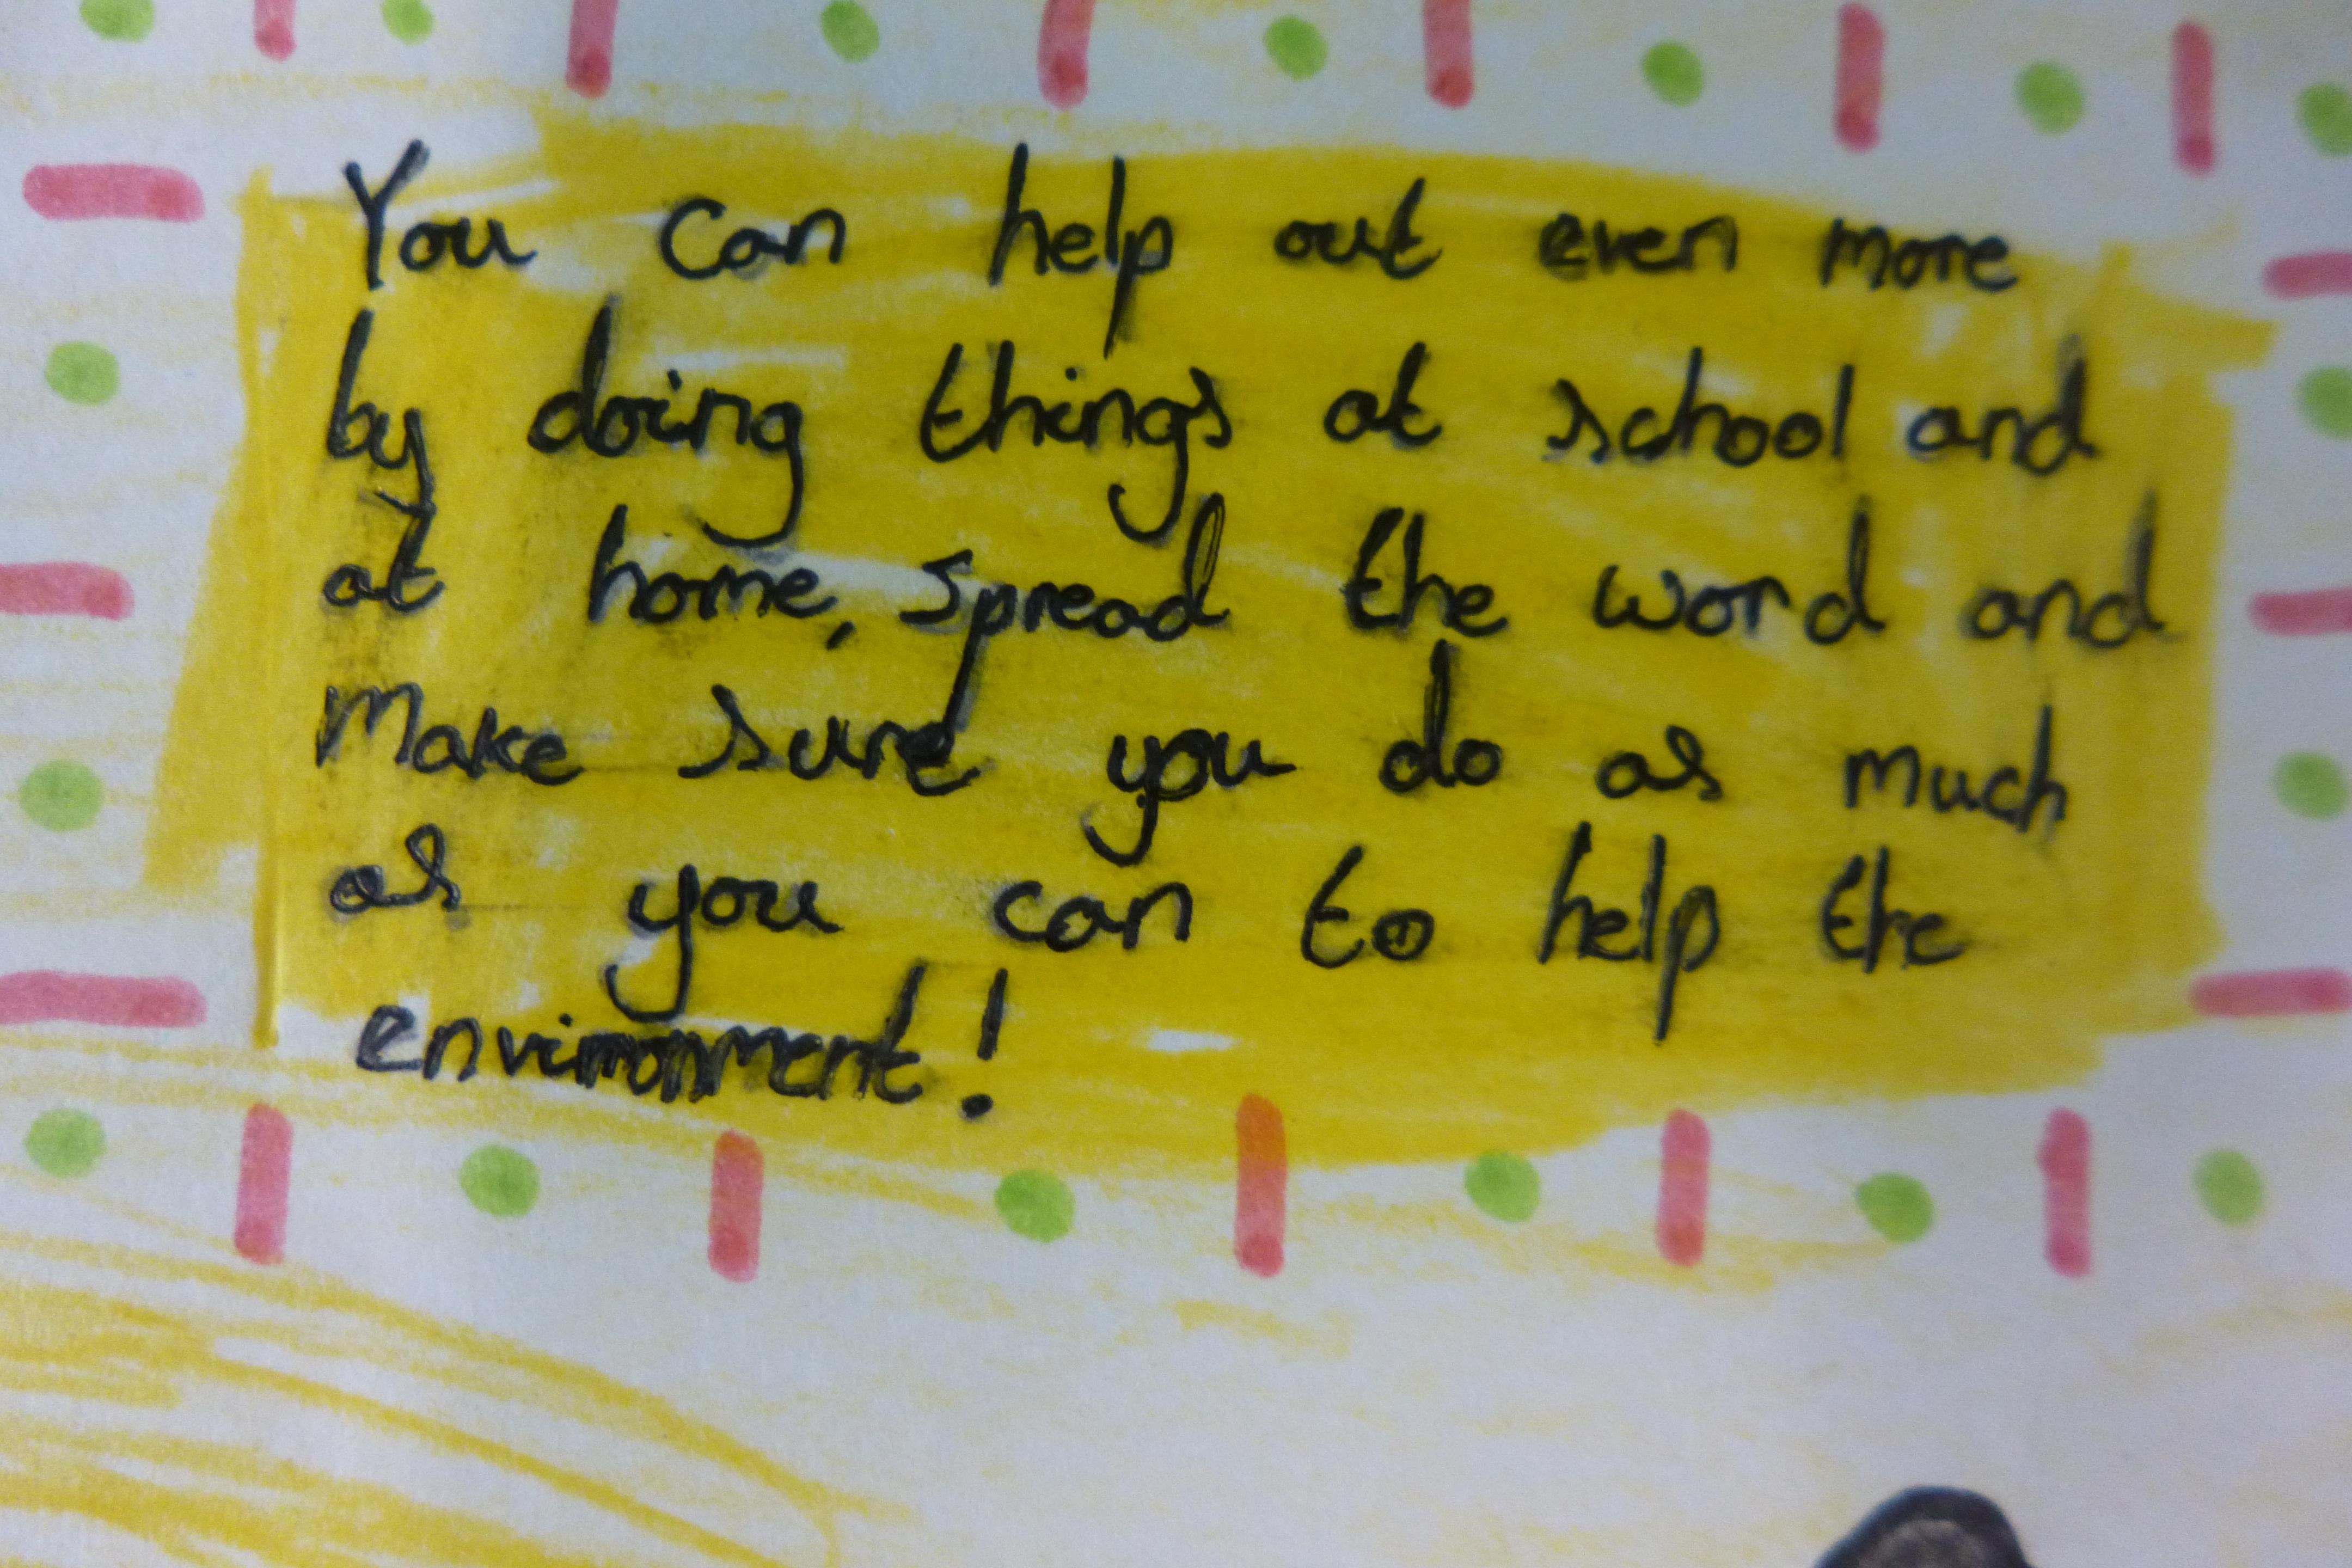 You can help out even more
by doing things at school and
at home, spread the word and
make sure you do as much
as you can to help the
environment!